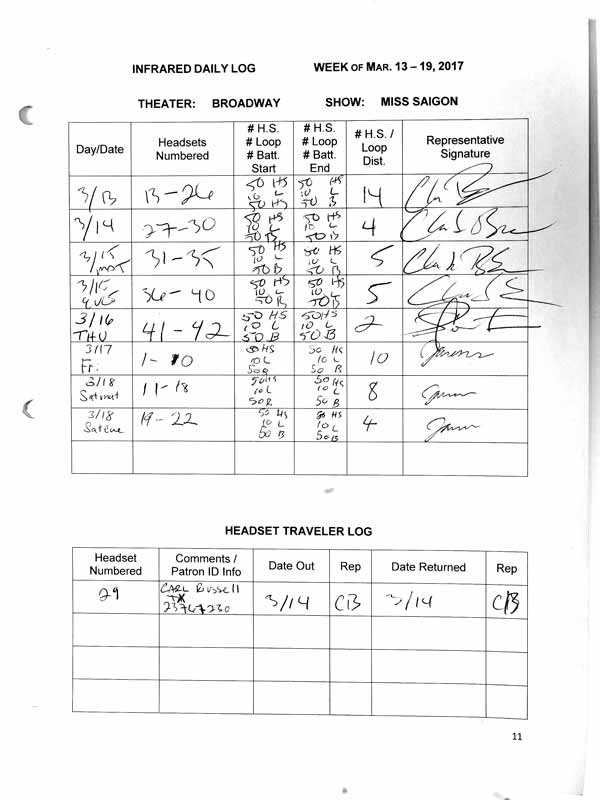 INFRARED DAILY LOG WEEK OF MAR. 13 – 19, 2017
THEATER: BROADWAY SHOW: MISS SAIGON
Day/Date Headsets Numbered # H.S. # Loop # Batt. Start # H.S. # Loop # Batt. End # H.S. / Loop Dist. Representative Signature
3/13 13-26 50 HS 10 L 50 HS 50 HS 10 L 50 B 14
3/14 27-30 50 HS 10 L 50 B 50 HS 10 L 50 B 4
3/15 mat 31-35 50 HS 10 L 50 B 50 HS 10 L 50 B 5
3/15 eve 36-40 50 HS 10 L 50 B 50 HS 10 L 50 B 5
3/16 THU 41-42 50 HS 10 L 50 B 50 HS 10 L 50 B 2
3/17 Fri 1-10 50 HS 10 L 50 B 50 HS 10 L 50 B 10
3/18 Sat mat 11-18 50 HS 10 L 50 B 50 HS 10 L 50 B 8
3/18 Sat eve 19-22 50 HS 10 L 50 B 50 HS 10 L 50 B 4
HEADSET TRAVELER LOG
Headset Numbered Comments / Patron ID Info Date Out Rep Date Returned Rep
29 CARL Russell TX 23767230 3/14 CB 3/14 CB
11